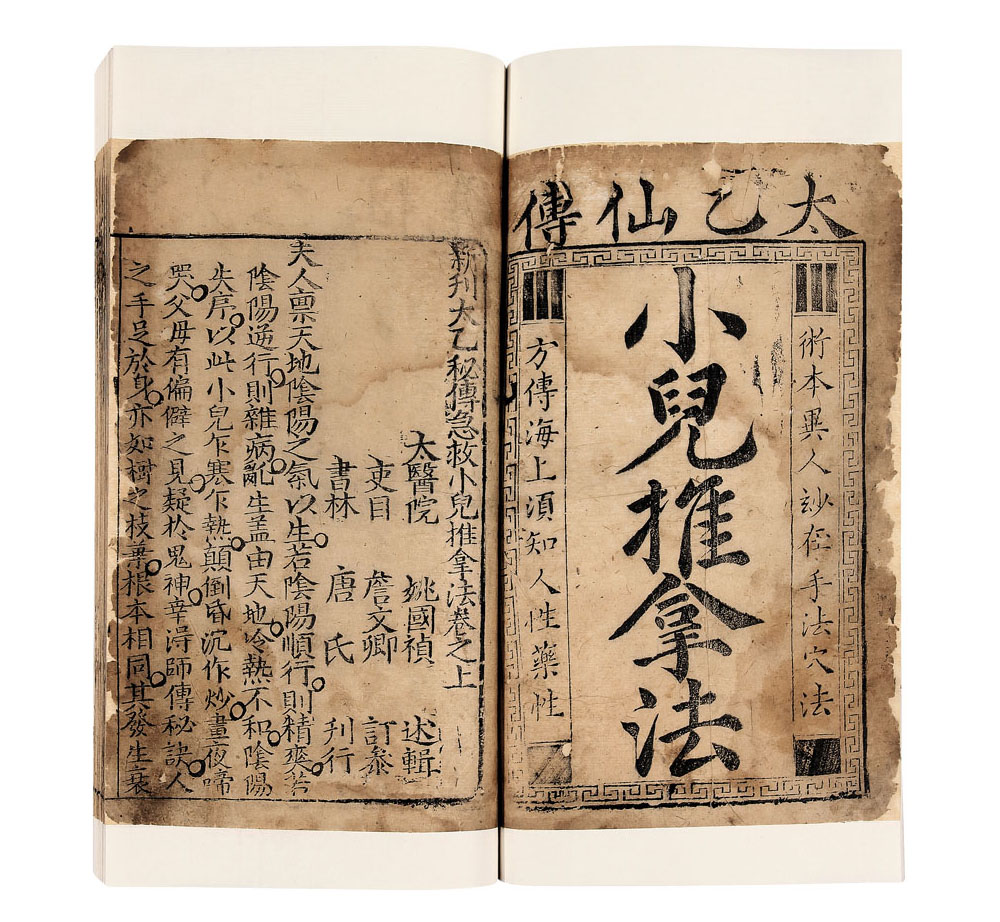 太乙仙傳
術本異人玅在手法穴法
小兒推拿法
方傳海上須知人性藥性
新刋太乙秘傳急救小兒推拿法卷之上
太醫院 姚國禎 述輯
吏目 詹文卿 訂叅
書林 唐氏 刊行
夫人禀天地陰陽之氣以生若陰陽順行則精爽若
陰陽逆行則雜病亂生盖由天地冷熱不和陰陽
失序以此小兒乍寒乍熱顛倒昏沉作炒晝夜啼
哭父母有偏僻之見疑於鬼神幸淂師傳秘訣人
之手足於身亦如樹之枝葉根本相同其發生衰